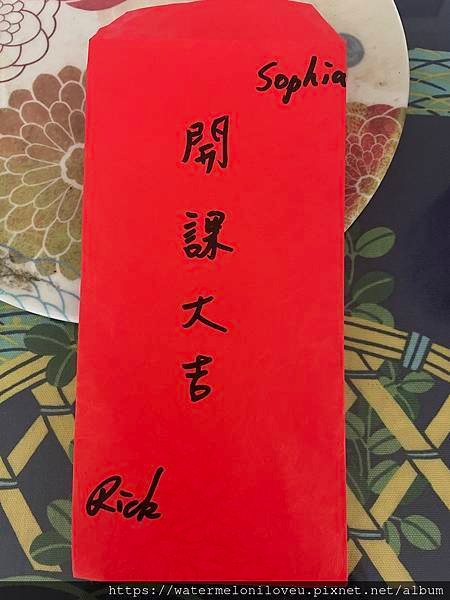 Sophia
開課大吉
Rick
https://watermeloniloveu.pixnet.net/album